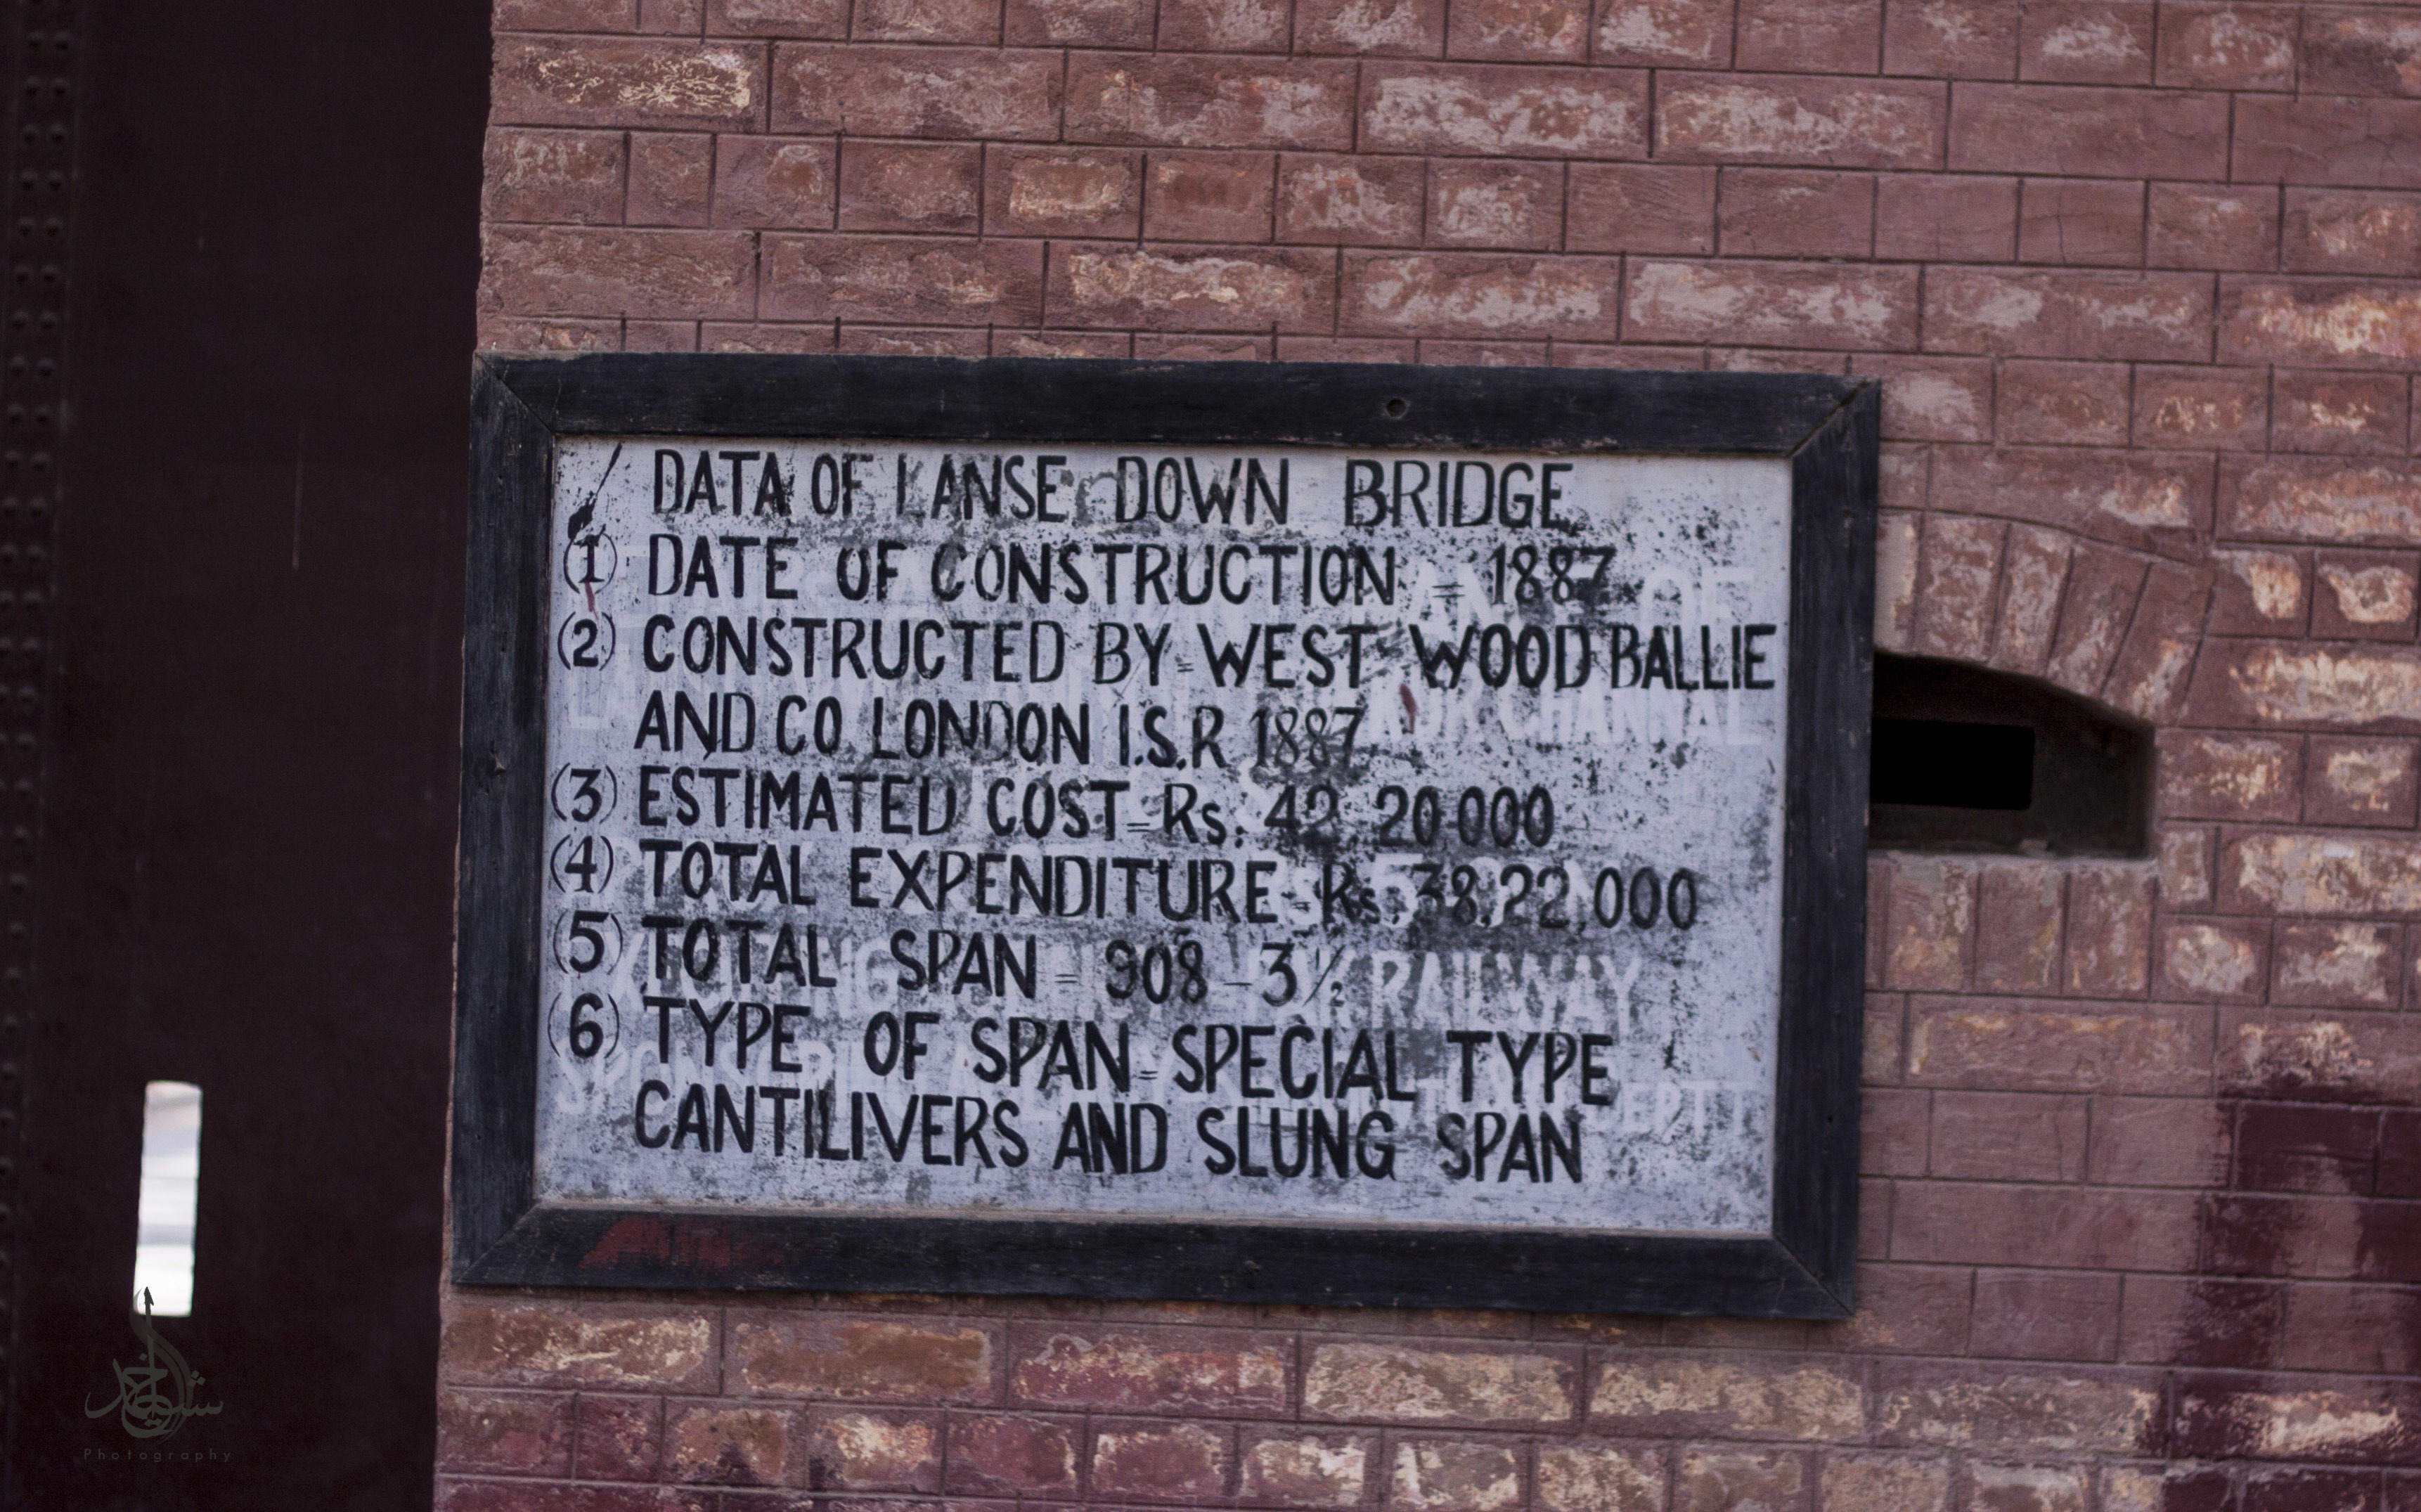 DATA OF LANSE DOWN BRIDGE
(1) DATE OF CONSTRUCTION = 1887
(2) CONSTRUCTED BY = WEST WOOD BALLIE
AND CO LONDON I.S.R 1887
(3) ESTIMATED COST = Rs. 42,20,000
(4) TOTAL EXPENDITURE = Rs. 38,22,000
(5) TOTAL SPAN = 908 - 3½
(6) TYPE OF SPAN = SPECIAL TYPE
CANTILIVERS AND SLUNG SPAN
RAILWAY
Photography